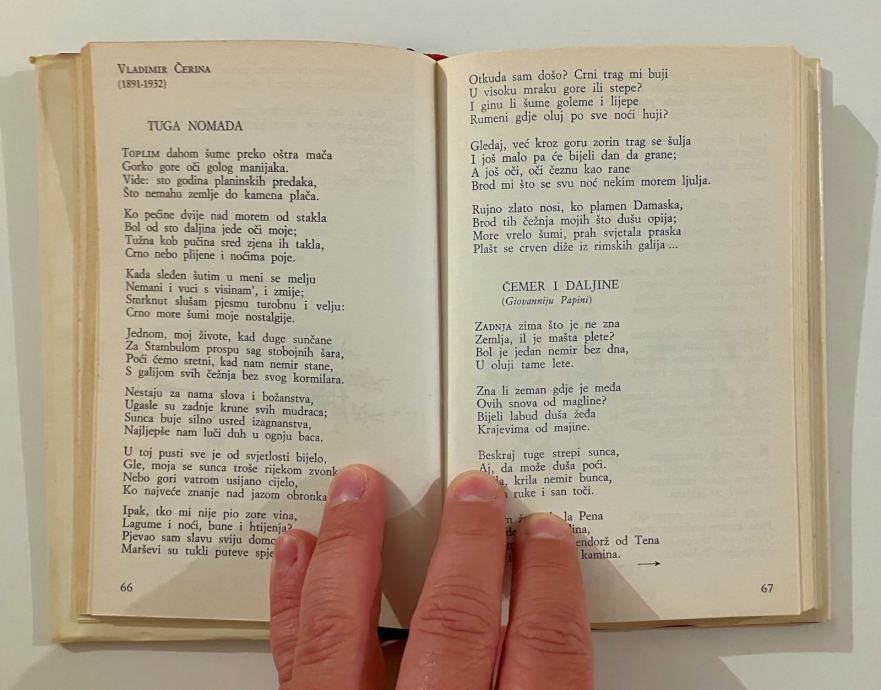 VLADIMIR ČERINA
(1891-1932)
TUGA NOMADA
TOPLIM dahom šume preko oštra mača
Gorko gore oči golog manijaka.
Vide: sto godina planinskih predaka,
Što nemahu zemlje do kamena plača.
Ko pećine dvije nad morem od stakla
Bol od sto daljina jede oči moje;
Tužna kob pučina sred zjena ih takla,
Crno nebo plijene i noćima poje.
Kada sleđen šutim u meni se melju
Nemani i vuci s visinam', i zmije;
Smrknut slušam pjesmu turobnu i velju:
Crno more šumi moje nostalgije.
Jednom, moj živote, kad duge sunčane
Za Stambulom prospu sag stobojnih šara,
Poći ćemo sretni, kad nam nemir stane,
S galijom svih čežnja bez svog kormilara.
Nestaju za nama slova i božanstva,
Ugasle su zadnje krune svih mudraca;
Sunca buje silno usred izagnanstva,
Najljepše nam luči duh u ognju baca.
U toj pusti sve je od svjetlosti bijelo,
Gle, moja se sunca troše rijekom
Nebo gori vatrom usijano cijelo,
Ko najveće znanje nad jazom obronka
Ipak, tko mi nije pio zore vina,
Lagume i noći, bune i htijenja?
Pjevao sam slavu sviju
Marševi su tukli puteve
66
Otkuda sam došo? Crni trag mi buji
U visoku mraku gore ili stepe?
I ginu li šume goleme i lijepe
Rumeni gdje oluj po sve noći huji?
Gledaj, već kroz goru zorin trag se šulja
I još malo pa će bijeli dan da grane;
A još oči, oči čeznu kao rane
Brod mi što se svu noć nekim morem ljulja.
Rujno zlato nosi, ko plamen Damaska,
Brod tih čežnja mojih što dušu opija;
More vrelo šumi, prah svjetala praska
Plašt se crven diže iz rimskih galija ...
ČEMER I DALJINE
(Giovanniju Papini)
ZADNJA zima što je ne zna
Zemlja, il je mašta plete?
Bol je jedan nemir bez dna,
U oluji tame lete.
Zna li zeman gdje je međa
Ovih snova od magline?
Bijeli labud duša žeđa
Krajevima od majine.
Beskraj tuge strepi sunca,
Aj, da može duša poći.
krila nemir bunca,
ruke i san toči.
la Pena
od Tena
kamina.
67